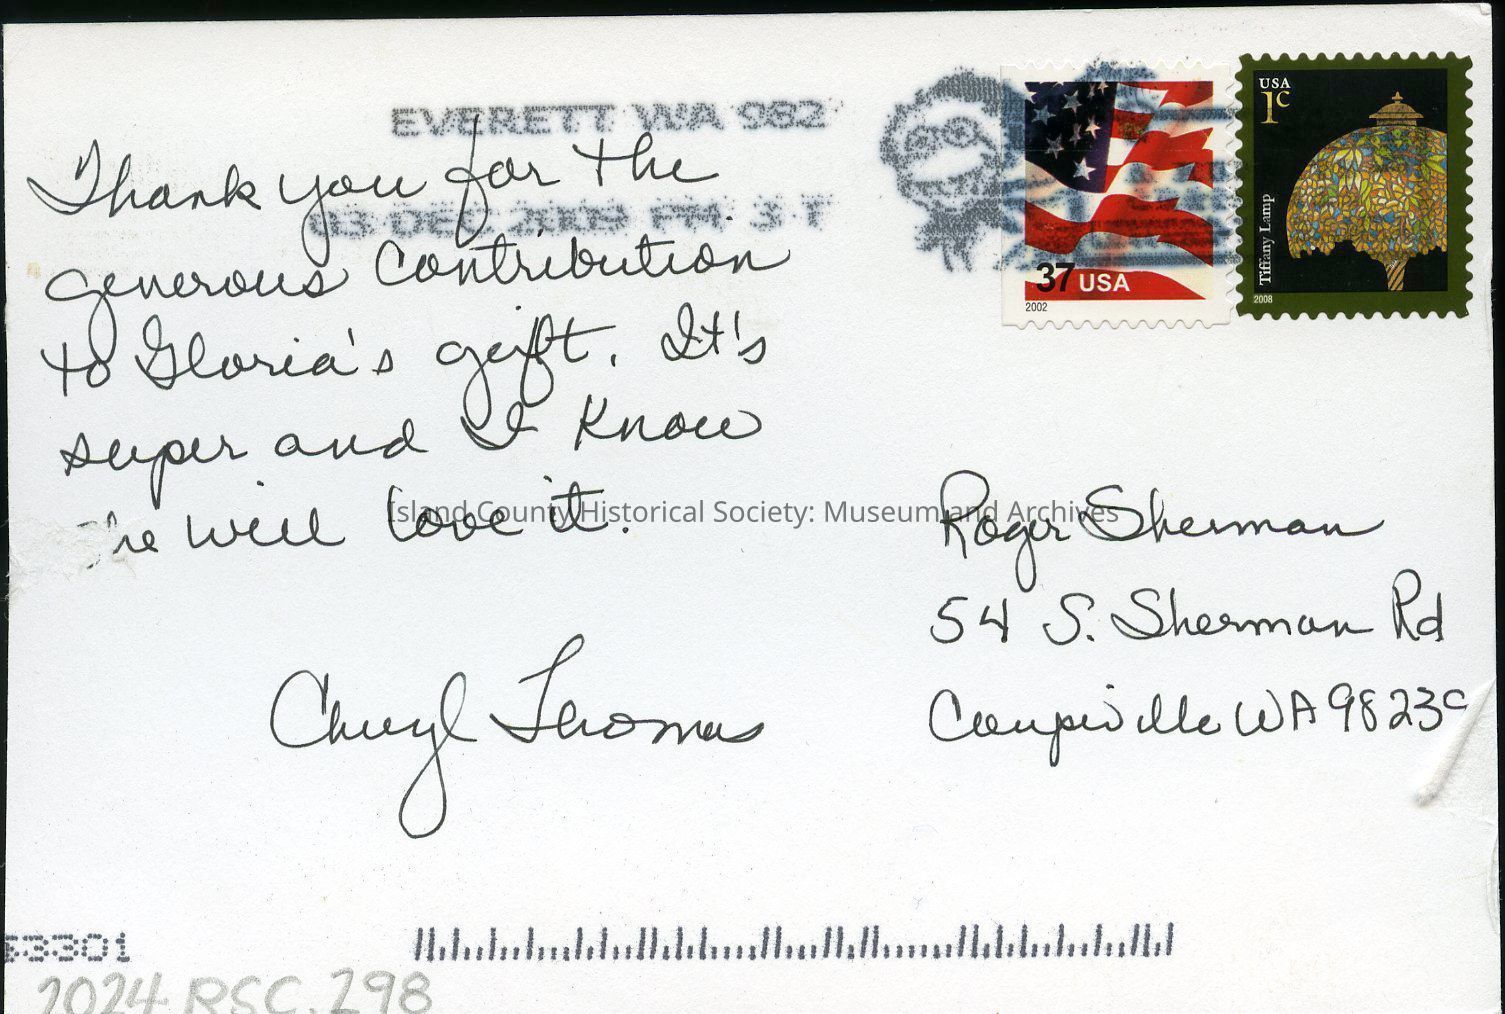 EVERETT WA 982
03 DEC 2009 PM 3 T
Thank you for the
generous contribution
to Gloria's gift. It's
super and I know
he will love it.
Cheryl Thomas
37 USA
2002
USA
1c
Tiffany Lamp
2008
Roger Sherman
54 S. Sherman Rd
Coupeville WA 98239
Island County Historical Society: Museum and Archives
3301
2024.RSC.298